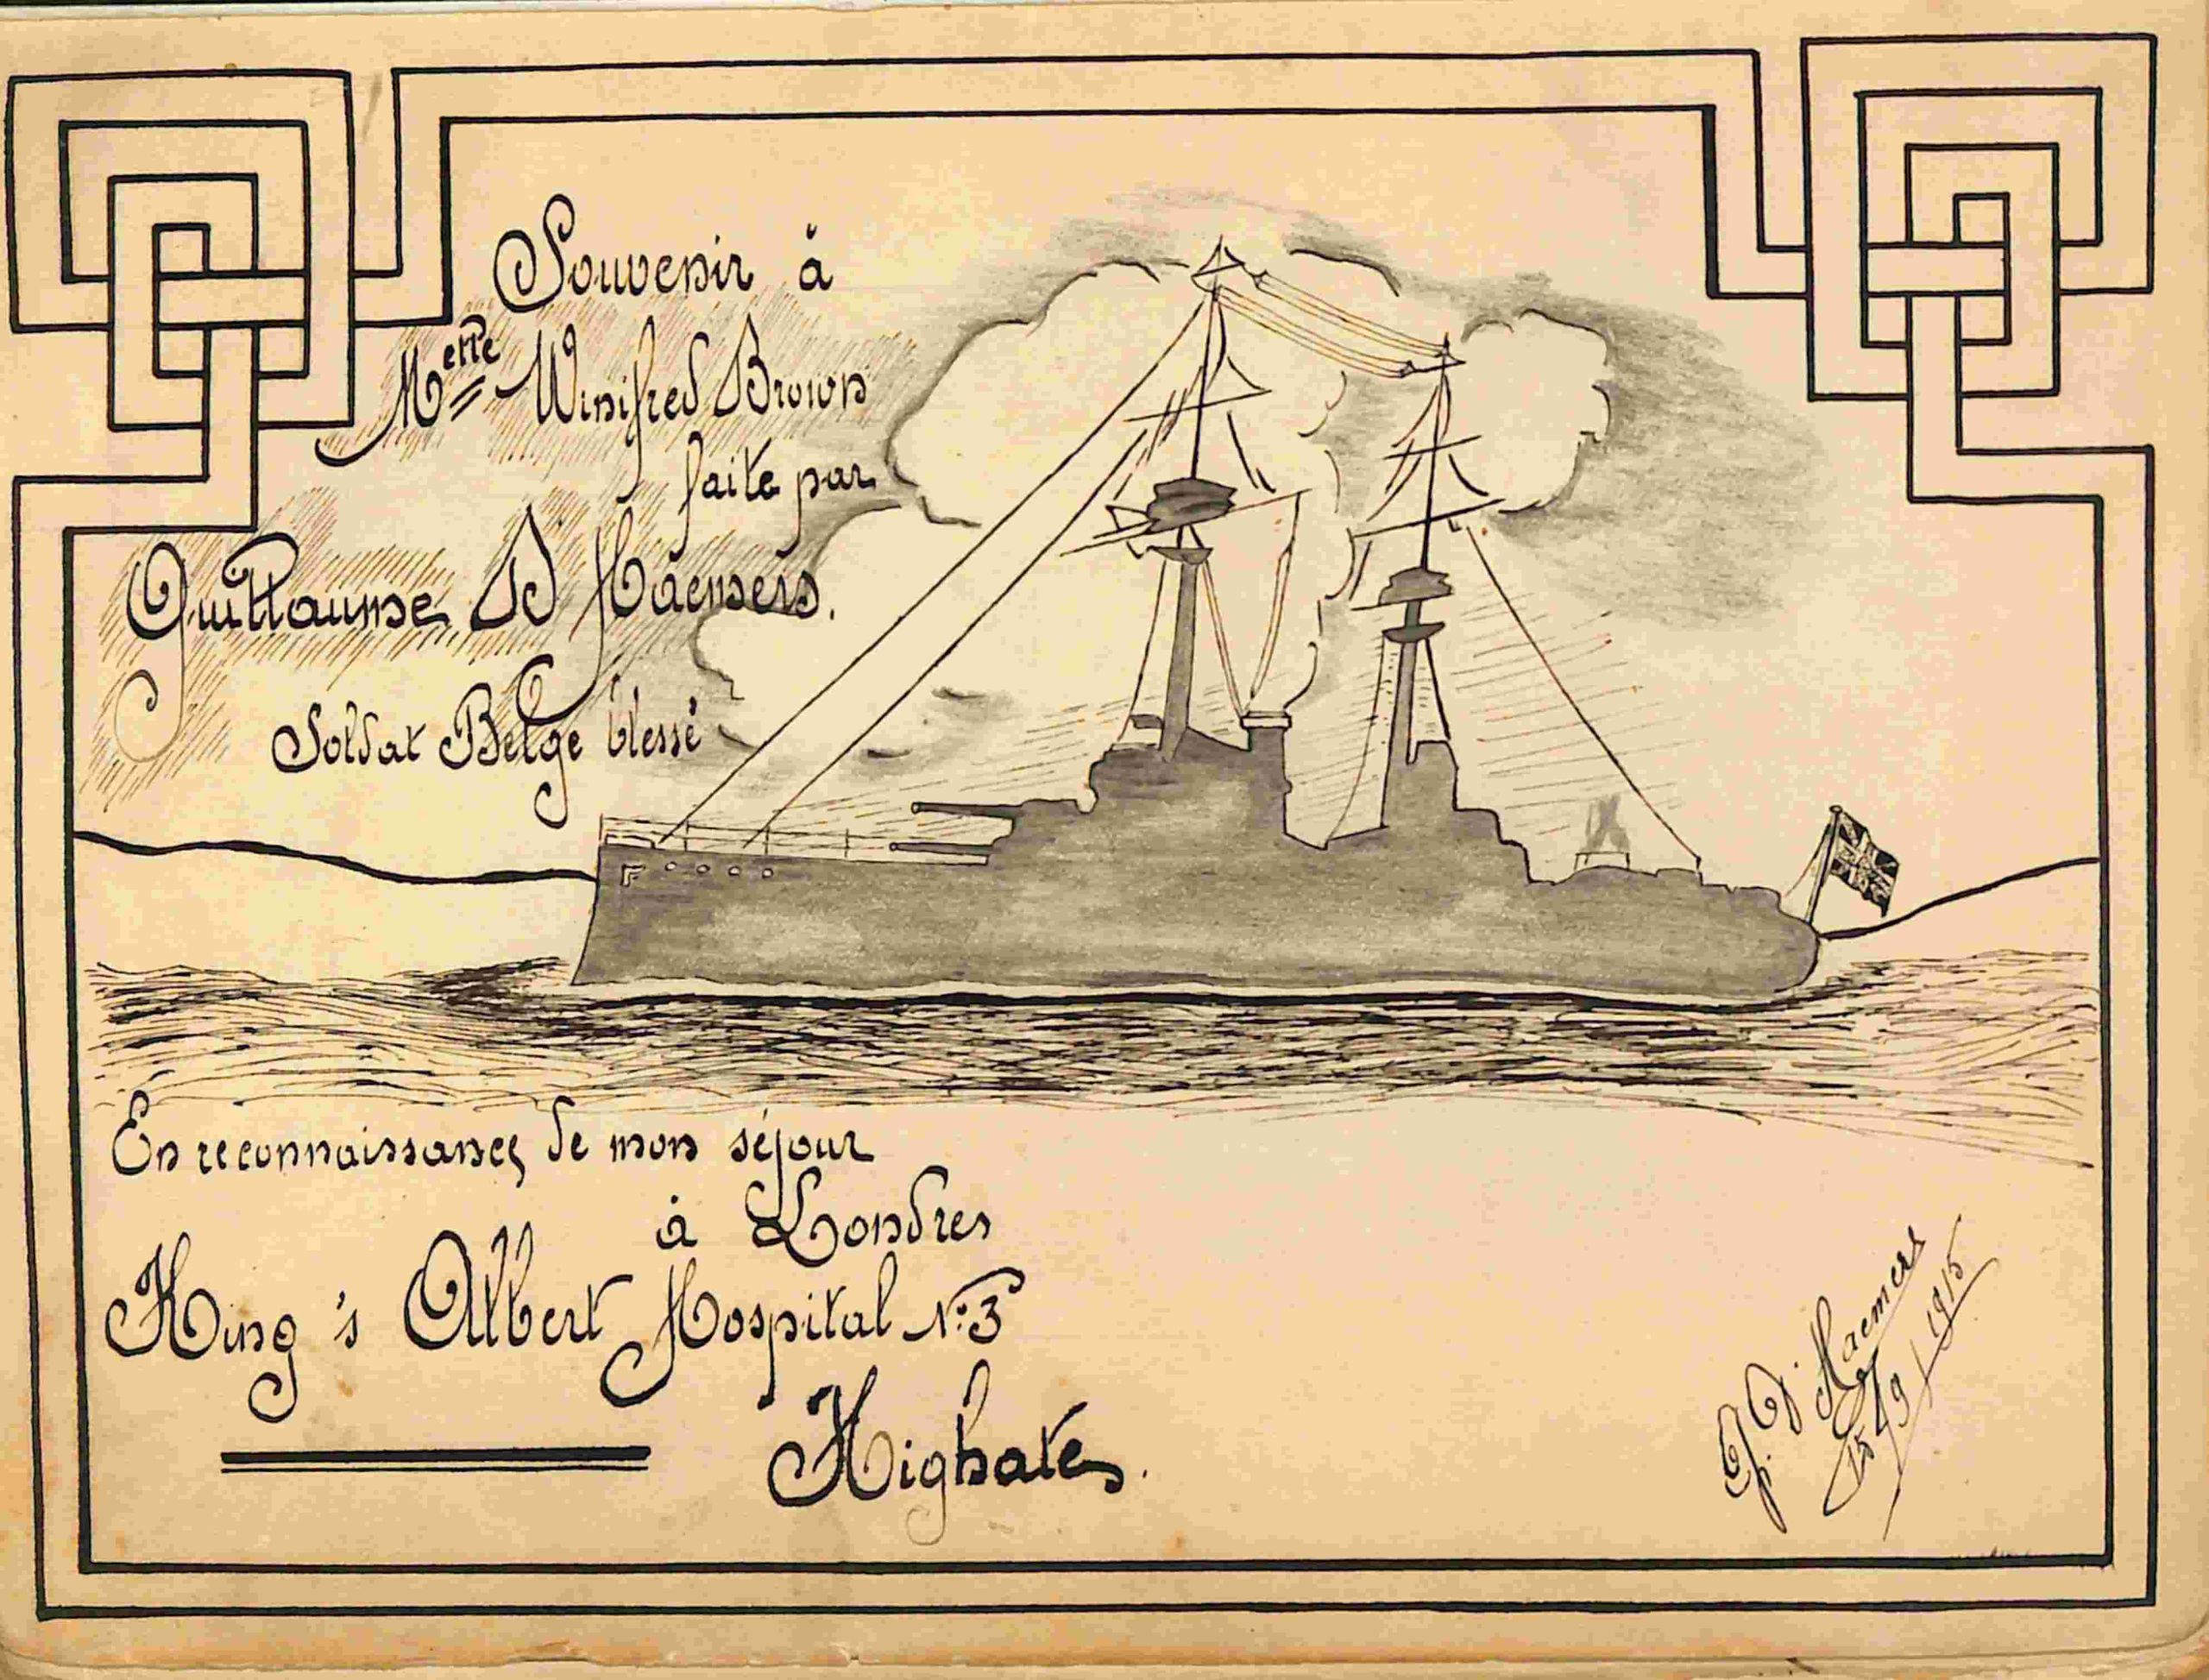 Souvenir à
Melle Winifred Brown
faite par
Guillaume D'Haemers.
Soldat Belge blessé
F
En reconnaissance de mon séjour
à Londres
King's Albert Hospital N:3
Highate.
G. D'Haemers
15/9/1915